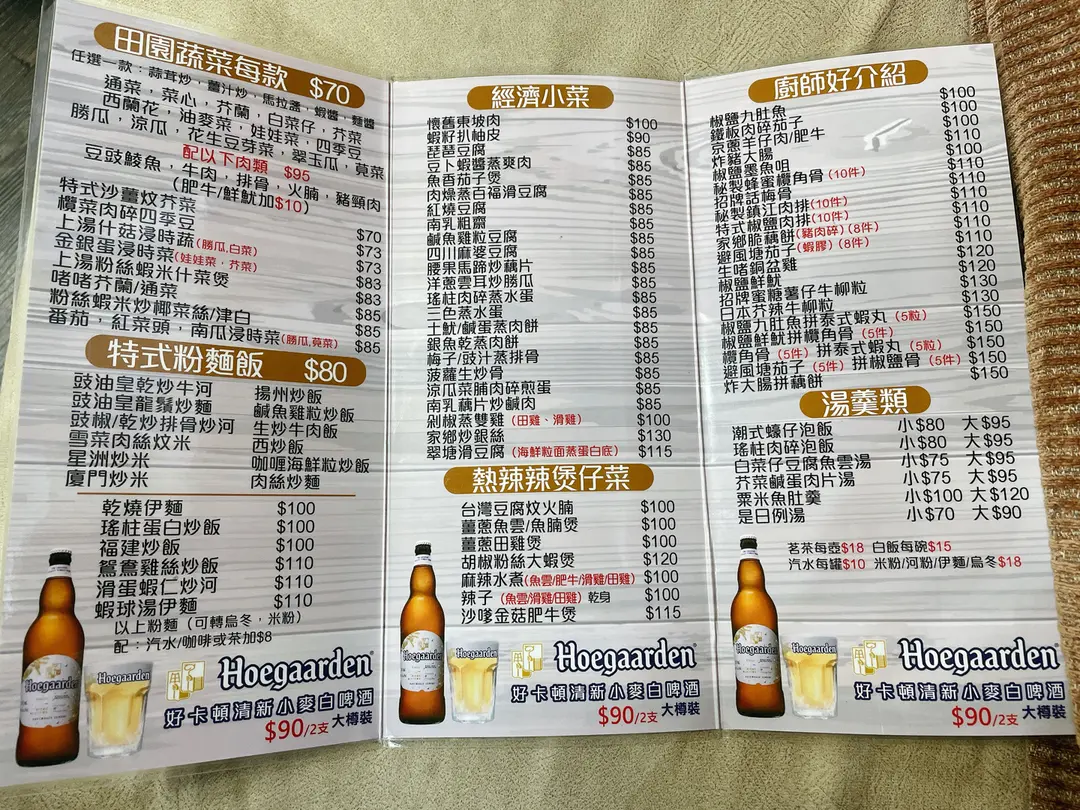 田園蔬菜每款 $70
任選一款：蒜茸炒，薑汁炒，馬拉盞，蝦醬，麵醬
通菜，菜心，芥蘭，白菜仔，芥菜
西蘭花，油麥菜，娃娃菜，四季豆
勝瓜，涼瓜，花生豆芽菜，翠玉瓜，莧菜
配以下肉類 $95
豆豉鯪魚，牛肉，排骨，火腩，豬頸肉
(肥牛/鮮魷加$10)
特式沙薑炆芥菜 $70
欖菜肉碎四季豆 $73
上湯什菇浸時蔬(勝瓜,白菜) $73
金銀蛋浸時菜(娃娃菜，芥菜) $83
上湯粉絲蝦米什菜煲 $83
啫啫芥蘭/通菜 $85
粉絲蝦米炒椰菜絲/津白 $85
番茄，紅菜頭，南瓜浸時菜(勝瓜,莧菜) $85
特式粉麵飯 $80
豉油皇乾炒牛河 揚州炒飯
豉油皇龍鬚炒麵 鹹魚雞粒炒飯
豉椒/乾炒排骨炒河 生炒牛肉飯
雪菜肉絲炆米 西炒飯
星洲炒米 咖喱海鮮粒炒飯
廈門炒米 肉絲炒麵
乾燒伊麵 $100
瑤柱蛋白炒飯 $100
福建炒飯 $100
鴛鴦雞絲炒飯 $110
滑蛋蝦仁炒河 $110
蝦球湯伊麵 $110
以上粉麵（可轉烏冬，米粉）
配：汽水/咖啡或茶加$8
Hoegaarden
Hoegaarden
Hoegaarden
好卡頓清新小麥白啤酒
$90/2支 大樽裝
經濟小菜
懷舊東坡肉 $100
蝦籽扒柚皮 $90
琵琶豆腐 $85
豆卜蝦醬蒸爽肉 $85
魚香茄子煲 $85
肉燥蒸百福滑豆腐 $85
紅燒豆腐 $85
南乳粗齋 $85
鹹魚雞粒豆腐 $85
四川麻婆豆腐 $85
腰果馬蹄炒藕片 $85
洋蔥雲耳炒勝瓜 $85
瑤柱肉碎蒸水蛋 $85
三色蒸水蛋 $85
土魷/鹹蛋蒸肉餅 $85
銀魚乾蒸肉餅 $85
梅子/豉汁蒸排骨 $85
菠蘿生炒骨 $85
涼瓜菜脯肉碎煎蛋 $85
南乳藕片炒鹹肉 $85
剁椒蒸雙雞（田雞、滑雞） $85
家鄉炒銀絲 $130
翠塘滑豆腐（海鮮粒面蒸蛋白底） $115
熱辣辣煲仔菜
台灣豆腐炆火腩 $100
薑蔥魚雲/魚腩煲 $100
薑蔥田雞煲 $100
胡椒粉絲大蝦煲 $120
麻辣水煮(魚雲/肥牛/滑雞/田雞) $100
辣子（魚雲/滑雞/田雞）乾身 $100
沙嗲金菇肥牛煲 $115
Hoegaarden
Hoegaarden
Hoegaarden
好卡頓清新小麥白啤酒
$90/2支 大樽裝
廚師好介紹
椒鹽九肚魚 $100
鐵板肉碎茄子 $100
京蔥羊仔肉/肥牛 $110
炸豬大腸 $100
椒鹽墨魚咀 $110
秘製蜂蜜欖角骨(10件) $110
招牌話梅骨 $110
秘製鎮江肉排(10件) $110
特式椒鹽肉排(10件) $110
家鄉脆藕餅(豬肉碎)(8件) $110
避風塘茄子(蝦膠)(8件) $110
生啫銅盆雞 $120
椒鹽鮮魷 $120
招牌蜜糖薯仔牛柳粒 $130
日本芥辣牛柳粒 $130
椒鹽九肚魚拼泰式蝦丸（5粒） $150
椒鹽鮮魷拼欖角骨（5件） $150
欖角骨（5件）拼泰式蝦丸（5粒） $150
避風塘茄子（5件）拼椒鹽骨（5件） $150
炸大腸拼藕餅 $150
湯羹類
潮式蠔仔泡飯 小$80 大$95
瑤柱肉碎泡飯 小$80 大$95
白菜仔豆腐魚雲湯 小$75 大$95
芥菜鹹蛋肉片湯 小$75 大$95
粟米魚肚羹 小$100 大$120
是日例湯 小$70 大$90
茗茶每壺$18 白飯每碗$15
汽水每罐$10 米粉/河粉/伊麵/烏冬$18
Hoegaarden
Hoegaarden
Hoegaarden
好卡頓清新小麥白啤酒
$90/2支 大樽裝